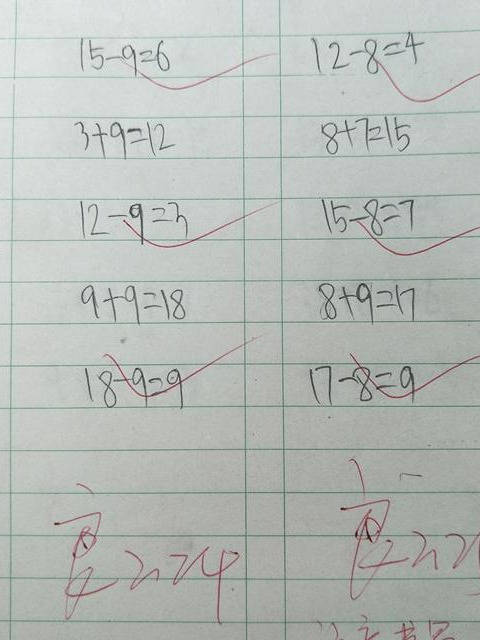 15-9=6 12-8=4
3+9=12 8+7=15
12-9=3 15-8=7
9+9=18 8+9=17
18-9=9 17-8=9